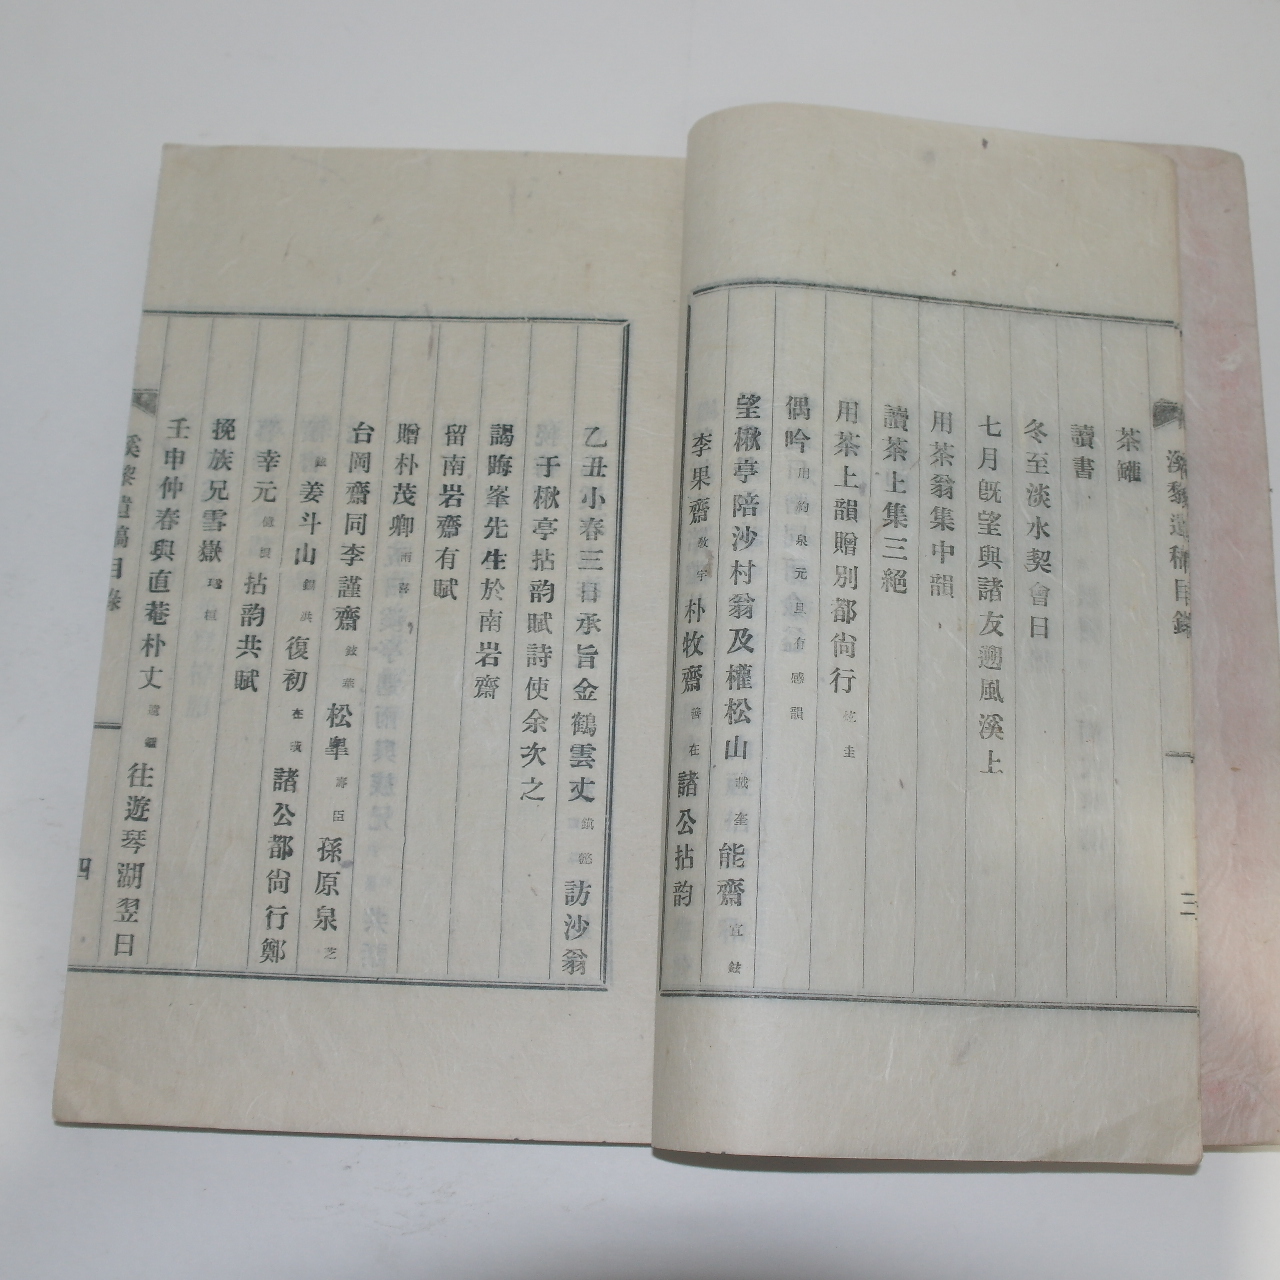 溪黎遺稿目錄
三
茶罐
讀書
冬至淡水契會日
七月旣望與諸友遡風溪上
用茶翁集中韻
讀茶上集三絕
用茶上韻贈別都尙行 圭
偶吟 用約泉元旦有感韻
望楸亭陪沙村翁及權松山 奎 能齋 宜鉉
李果齋 敎宇 朴牧齋 在 諸公拈韵
乙丑小春三日承旨金鶴雲丈 鎭 訪沙翁
于楸亭拈韵賦詩使余次之
謁晦峯先生於南岩齋
留南岩齋有賦
贈朴茂卿
台岡齋同李謹齋 鉉華 松皐 壽臣 孫原泉 芝
姜斗山 錫洪 復初 在 諸公都尙行鄭
幸元 拈韵共賦
挽族兄雪嶽
壬申仲春與直菴朴丈 遠 往遊琴湖翌日
溪黎遺稿目錄
四